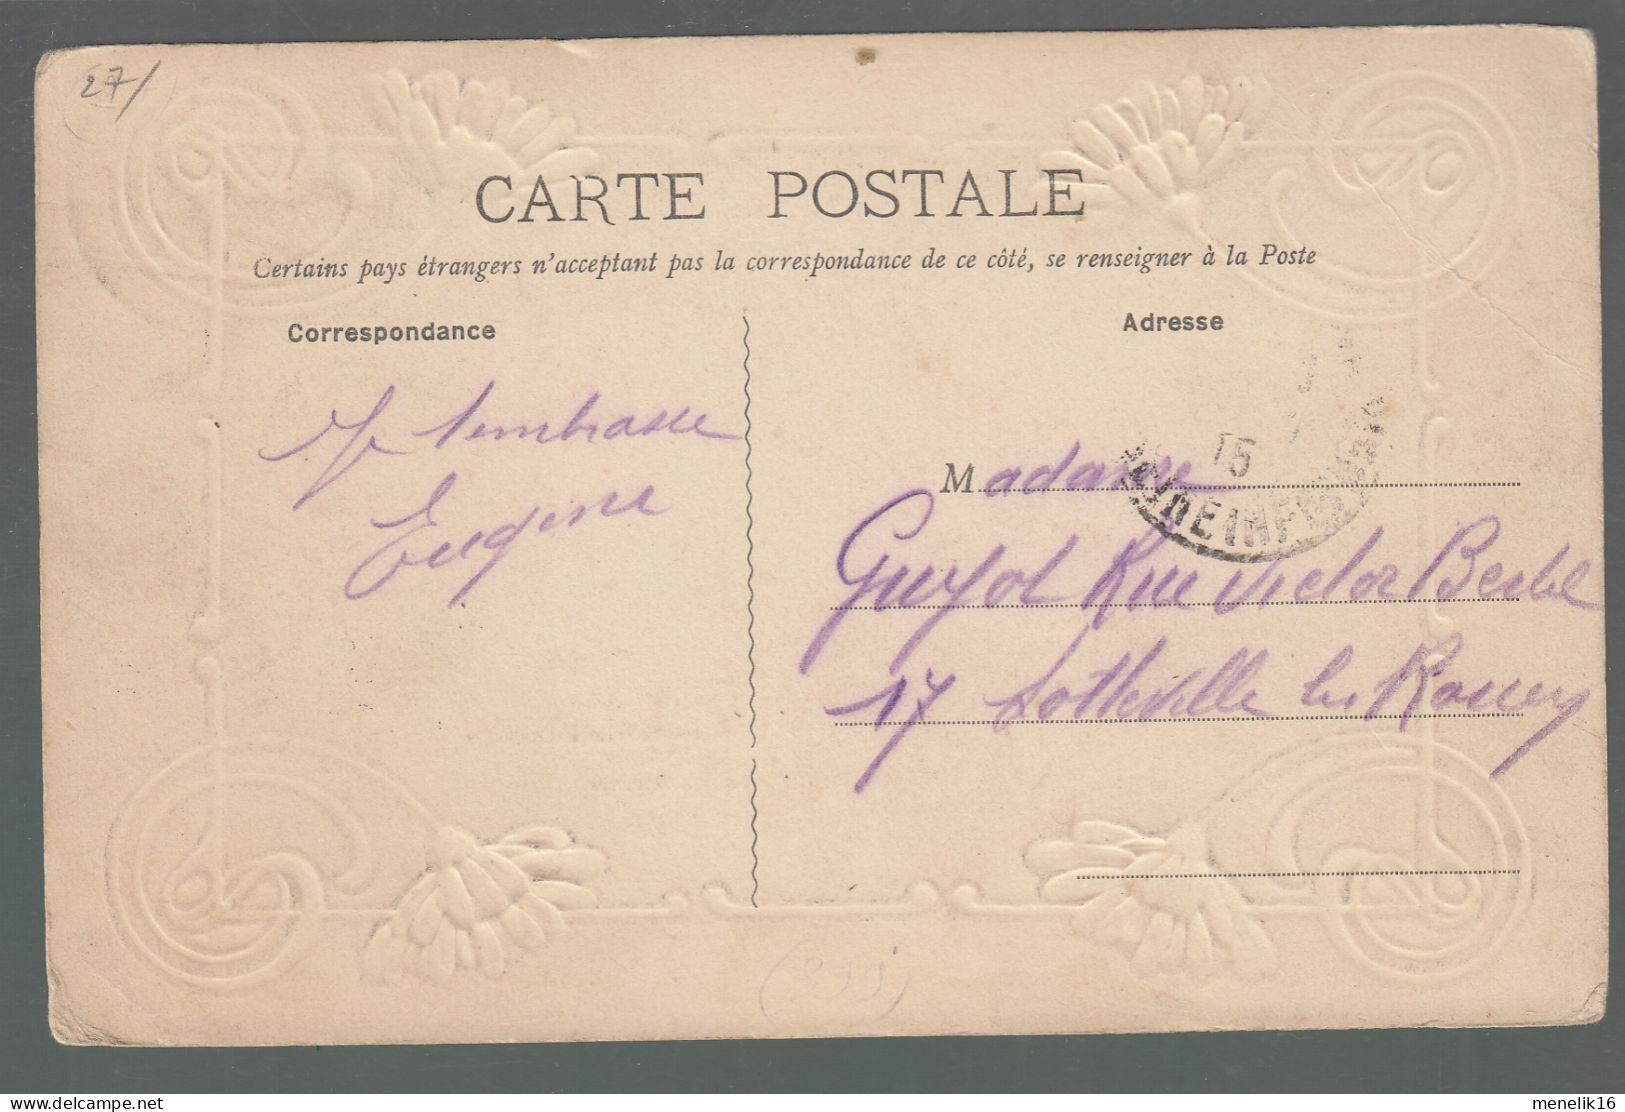 27/
CARTE POSTALE
Certains pays étrangers n'acceptant pas la correspondance de ce côté, se renseigner à la Poste
Correspondance
Adresse
Je t'embrasse
Eugène
Madame
Guyot Rue Victor
17 Sotteville les Rouen
15
SEINE INFRE
menelik16